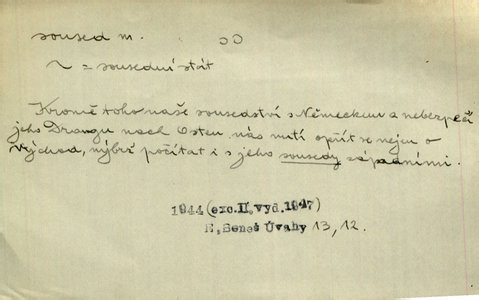 soused m.
~ = sousední stát
Kromě toho naše sousedství s Německem a nebezpečí
jeho Drangu nach Osten nás nutí opřít se nejen o
Východ, nýbrž počítat i s jeho sousedy západními.
1944 (exc.II.vyd.1947)
E. Beneš Úvahy 13, 12.